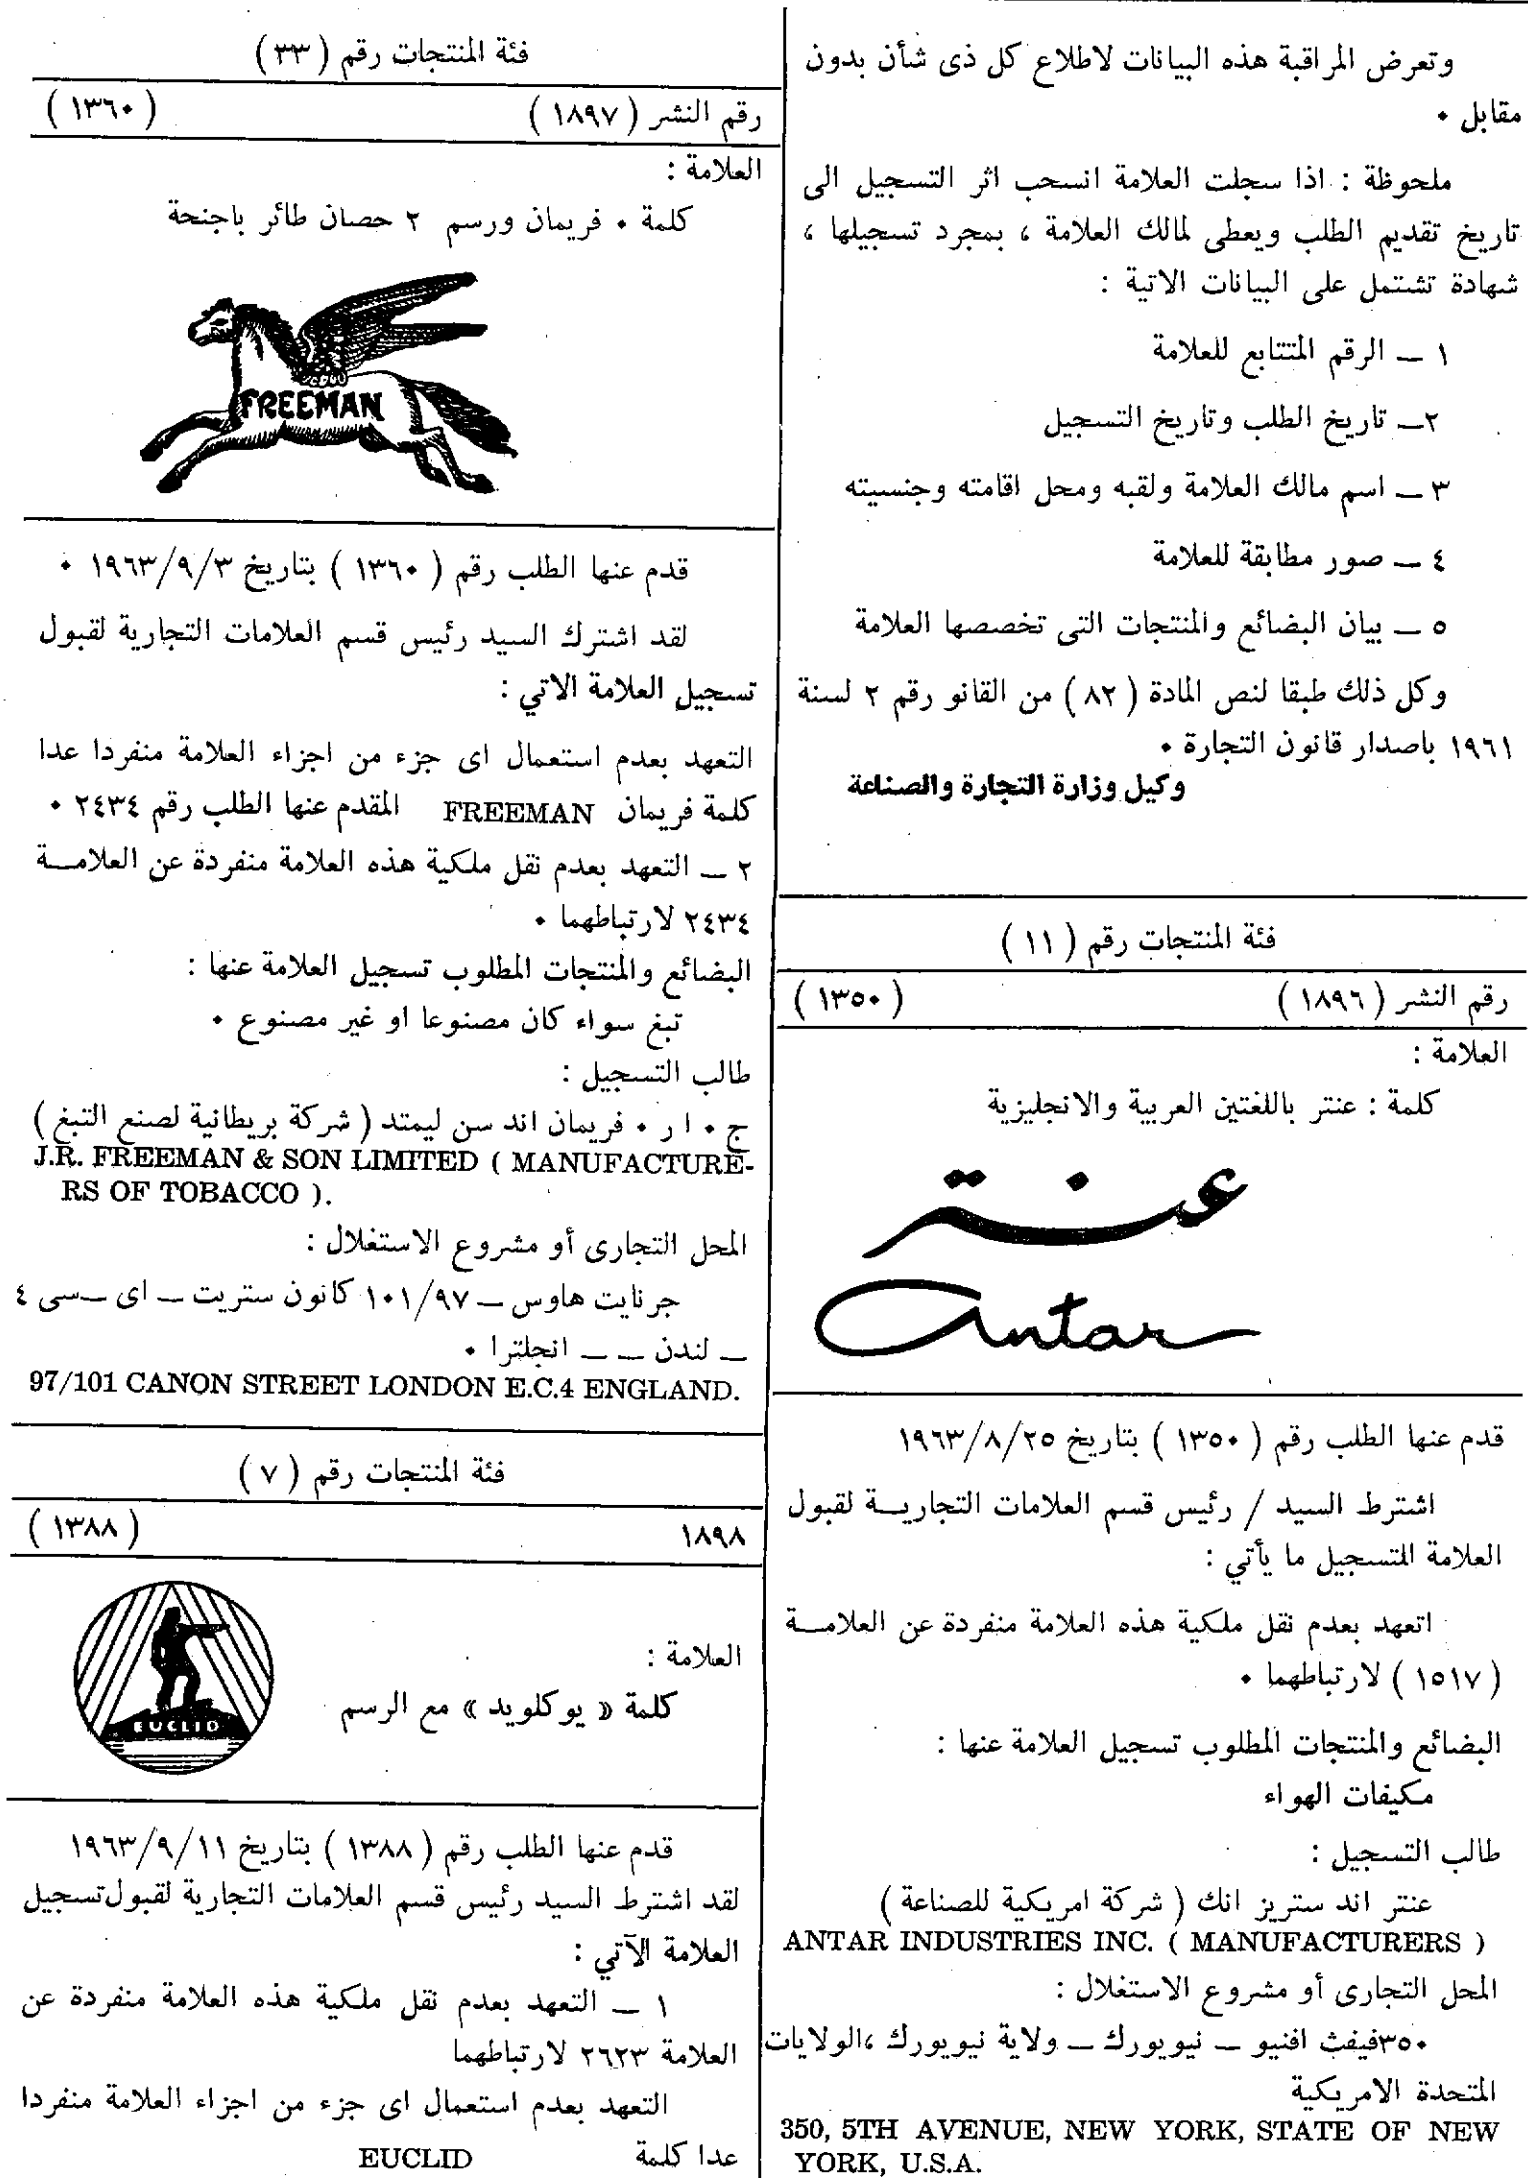 وتعرض المراقبة هذه البيانات لاطلاع كل ذى شأن بدون
مقابل ٠
ملحوظة : اذا سجلت العلامة انسحب اثر التسجيل الى
تاريخ تقديم الطلب ويعطى لمالك العلامة ، بمجرد تسجيلها ،
شهادة تشتمل على البيانات الاتية :
١ ـ الرقم المتتابع للعلامة
٢ـ تاريخ الطلب وتاريخ التسجيل
٣ ـ اسم مالك العلامة ولقبه ومحل اقامته وجنسيته
٤ ـ صور مطابقة للعلامة
٥ ـ بيان البضائع والمنتجات التى تخصصها العلامة
وكل ذلك طبقا لنص المادة ( ٨٢ ) من القانو رقم ٢ لسنة
١٩٦١ باصدار قانون التجارة ٠
وكيل وزارة التجارة والصناعة
فئة المنتجات رقم ( ١١ )
رقم النشر ( ١٨٩٦ ) ( ١٣٥٠ )
العلامة :
كلمة : عنتر باللغتين العربية والانجليزية
عنتر
Antar
قدم عنها الطلب رقم ( ١٣٥٠ ) بتاريخ ١٩٦٣/٨/٢٥
اشترط السيد / رئيس قسم العلامات التجاريـة لقبول
العلامة المتسجيل ما يأتي :
اتعهد بعدم نقل ملكية هذه العلامة منفردة عن العلامـة
( ١٥١٧ ) لارتباطهما ٠
البضائع والمنتجات المطلوب تسجيل العلامة عنها :
مكيفات الهواء
طالب التسجيل :
عنتر اند ستريز انك ( شركة امريكية للصناعة )
ANTAR INDUSTRIES INC. ( MANUFACTURERS )
المحل التجارى أو مشروع الاستغلال :
٣٥٠فيفث افنيو ـ نيويورك ـ ولاية نيويورك ،الولايات
المتحدة الامريكية
350, 5TH AVENUE, NEW YORK, STATE OF NEW
YORK, U.S.A.
فئة المنتجات رقم ( ٣٣ )
رقم النشر ( ١٨٩٧ ) ( ١٣٦٠ )
العلامة :
كلمة ٠ فريمان ورسم ٢ حصان طائر باجنحة
FREEMAN
قدم عنها الطلب رقم ( ١٣٦٠ ) بتاريخ ١٩٦٣/٩/٣ ٠
لقد اشترك السيد رئيس قسم العلامات التجارية لقبول
تسجيل العلامة الاتي :
التعهد بعدم استعمال اى جزء من اجزاء العلامة منفردا عدا
كلمة فريمان FREEMAN المقدم عنها الطلب رقم ٢٤٣٤ ٠
٢ ـ التعهد بعدم نقل ملكية هذه العلامة منفردة عن العلامـة
٢٤٣٤ لارتباطهما ٠
البضائع والمنتجات المطلوب تسجيل العلامة عنها :
تبغ سواء كان مصنوعا او غير مصنوع ٠
طالب التسجيل :
ج ٠ ا ر ٠ فريمان اند سن ليمتد ( شركة بريطانية لصنع التبغ )
J.R. FREEMAN & SON LIMITED ( MANUFACTURE-
RS OF TOBACCO ).
المحل التجارى أو مشروع الاستغلال :
جرنايت هاوس ـ ١٠١/٩٧ كانون ستريت ـ اى ـسى ٤
ـ لندن ـ ـ انجلترا ٠
97/101 CANON STREET LONDON E.C.4 ENGLAND.
فئة المنتجات رقم ( ٧ )
١٨٩٨ ( ١٣٨٨ )
العلامة :
كلمة « يوكلويد » مع الرسم
EUCLID
قدم عنها الطلب رقم ( ١٣٨٨ ) بتاريخ ١٩٦٣/٩/١١
لقد اشترط السيد رئيس قسم العلامات التجارية لقبول تسجيل
العلامة الآتي :
١ ـ التعهد بعدم نقل ملكية هذه العلامة منفردة عن
العلامة ٢٦٢٣ لارتباطهما
التعهد بعدم استعمال اى جزء من اجزاء العلامة منفردا
عدا كلمة EUCLID